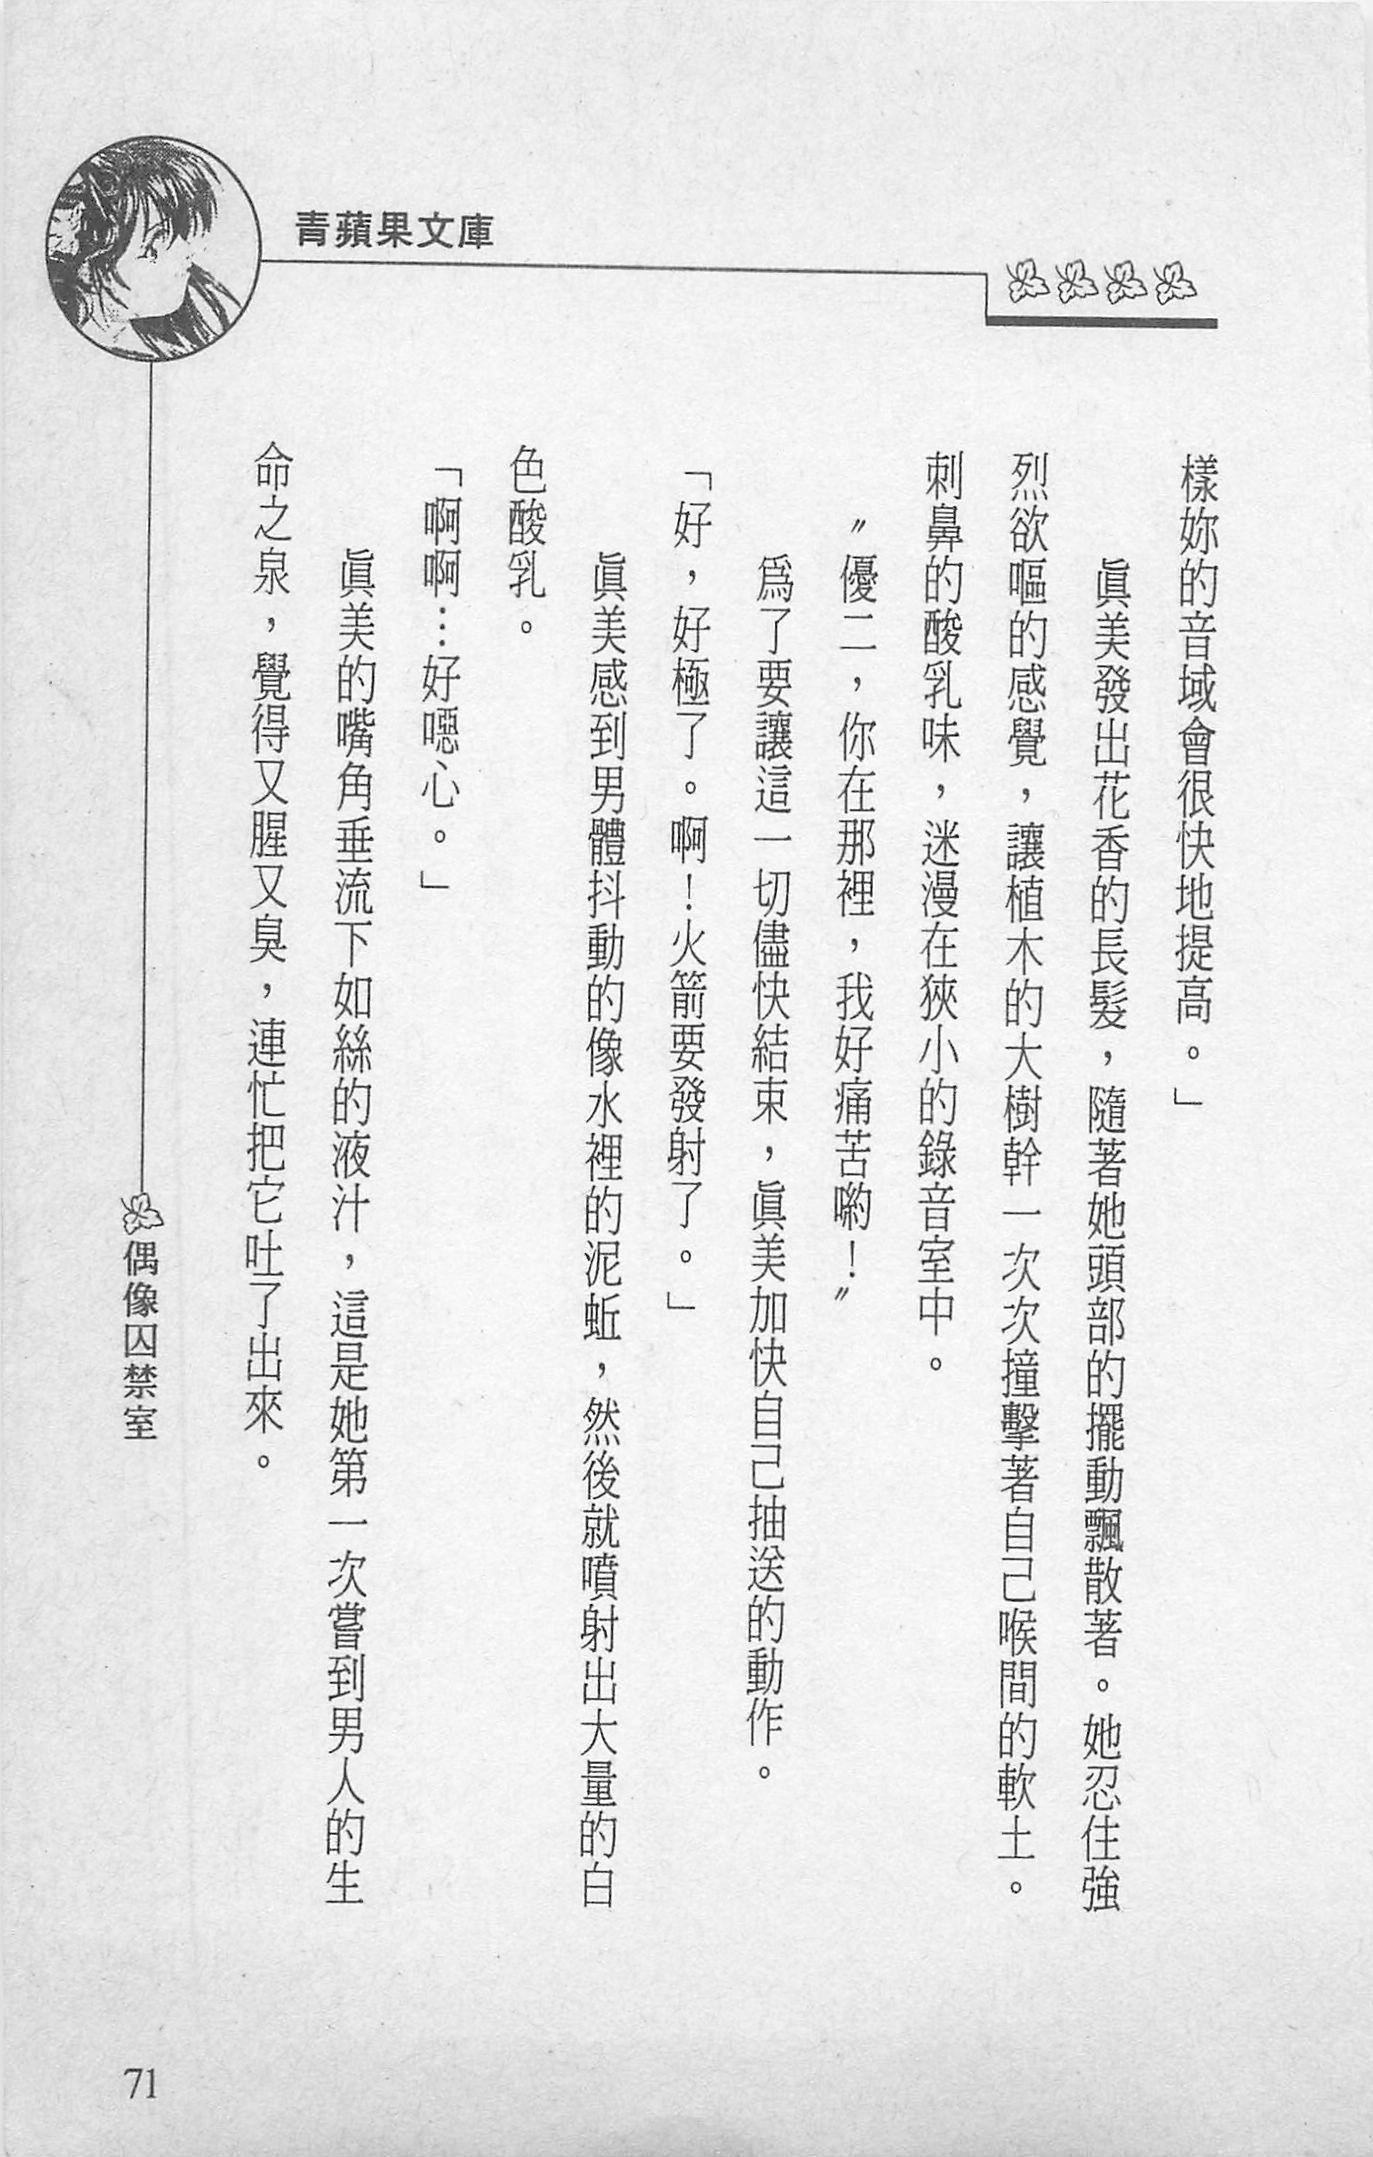 青蘋果文庫
樣妳的音域會很快地提高。」
眞美發出花香的長髮，隨著她頭部的擺動飄散著。她忍住強
烈欲嘔的感覺，讓植木的大樹幹一次次撞擊著自己喉間的軟土。
刺鼻的酸乳味，迷漫在狹小的錄音室中。
〃優二，你在那裡，我好痛苦喲！〃
爲了要讓這一切儘快結束，眞美加快自己抽送的動作。
「好，好極了。啊！火箭要發射了。」
眞美感到男體抖動的像水裡的泥蚯，然後就噴射出大量的白
色酸乳。
「啊啊…好噁心。」
眞美的嘴角垂流下如絲的液汁，這是她第一次嘗到男人的生
命之泉，覺得又腥又臭，連忙把它吐了出來。
偶像囚禁室
71